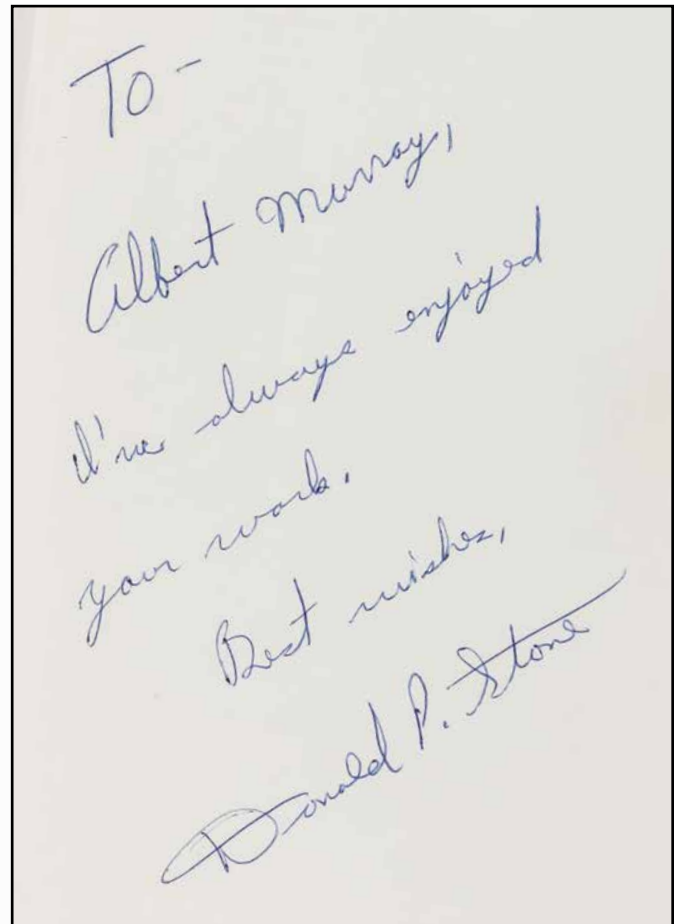 To -
Albert Murray,
I've always enjoyed
your work.
Best wishes,
Donald P. Stone